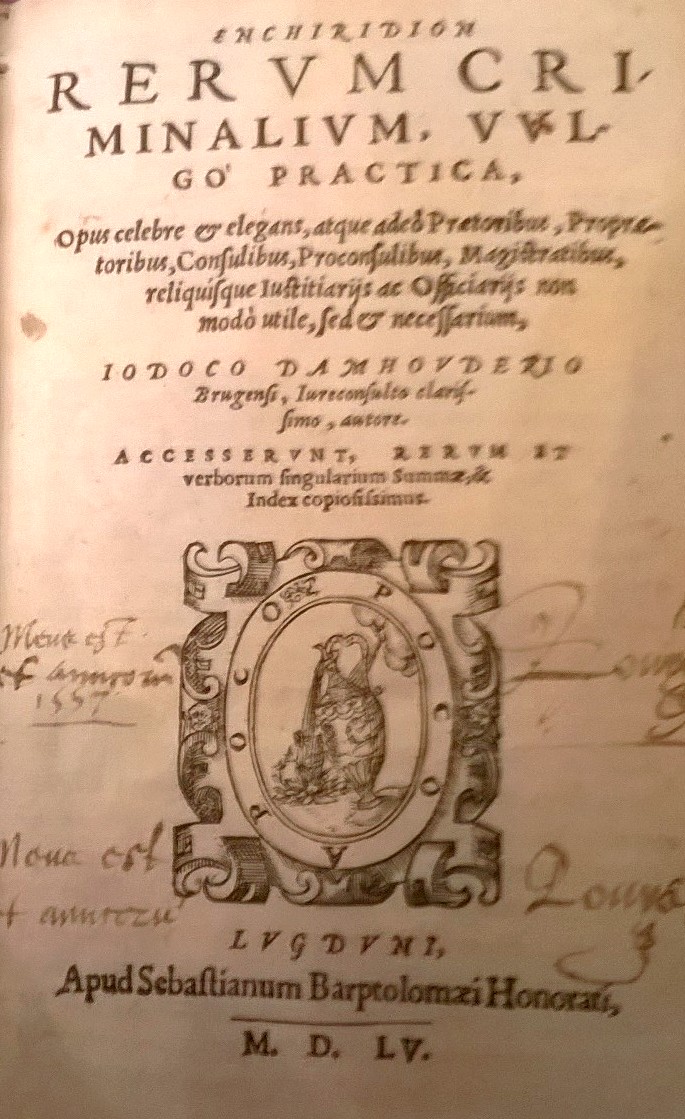 ENCHIRIDION
RERVM CRI-
MINALIVM, VVL-
GO' PRACTICA,
Opus celebre & elegans, atque adeò Prætoribus, Propræ-
toribus, Consulibus, Proconsulibus, Magistratibus,
reliquisque Iustitiarijs ac Officiarijs non
modò utile, sed & necessarium,
IODOCO DAMHOVDERIO
Brugensi, Iureconsulto claris-
simo, autore.
ACCESSERVNT, RERVM ET
verborum singularium Summæ, &
Index copiosissimus.
POCO A POCO
est
1557
est
LVGDVNI,
Apud Sebastianum Barptolomæi Honorati,
M. D. LV.